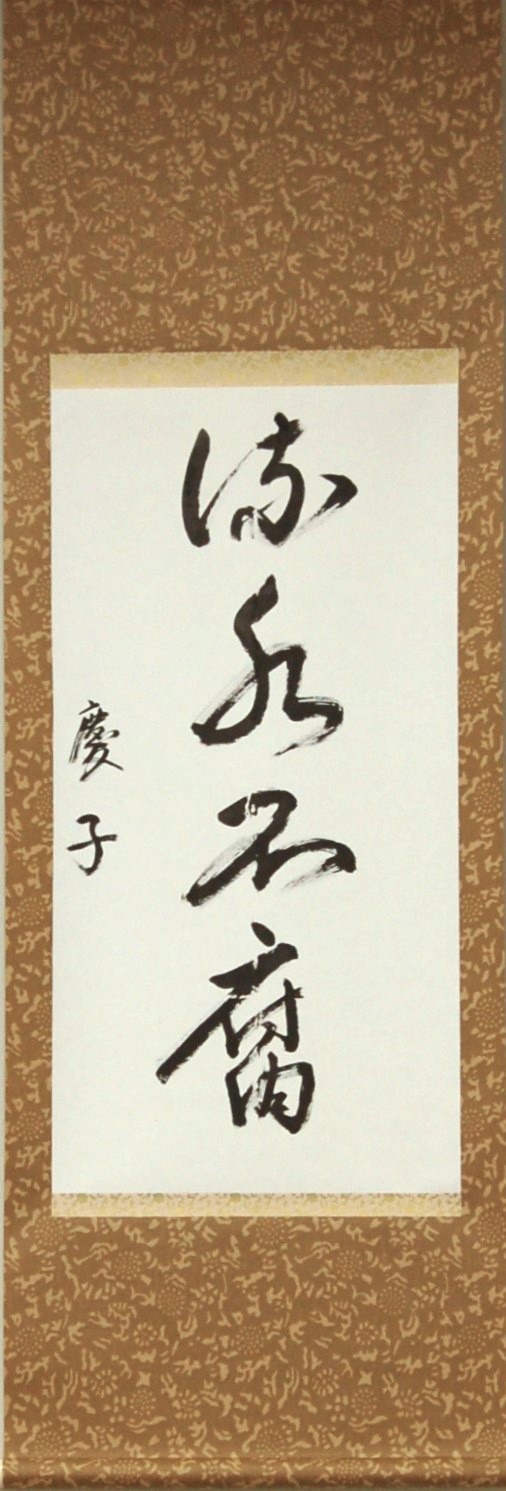 流水不腐
慶子